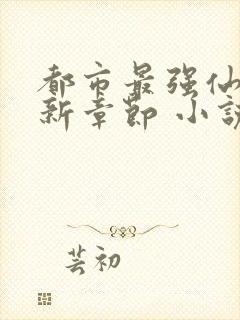 都市最强仙
新章节 小说
芸初